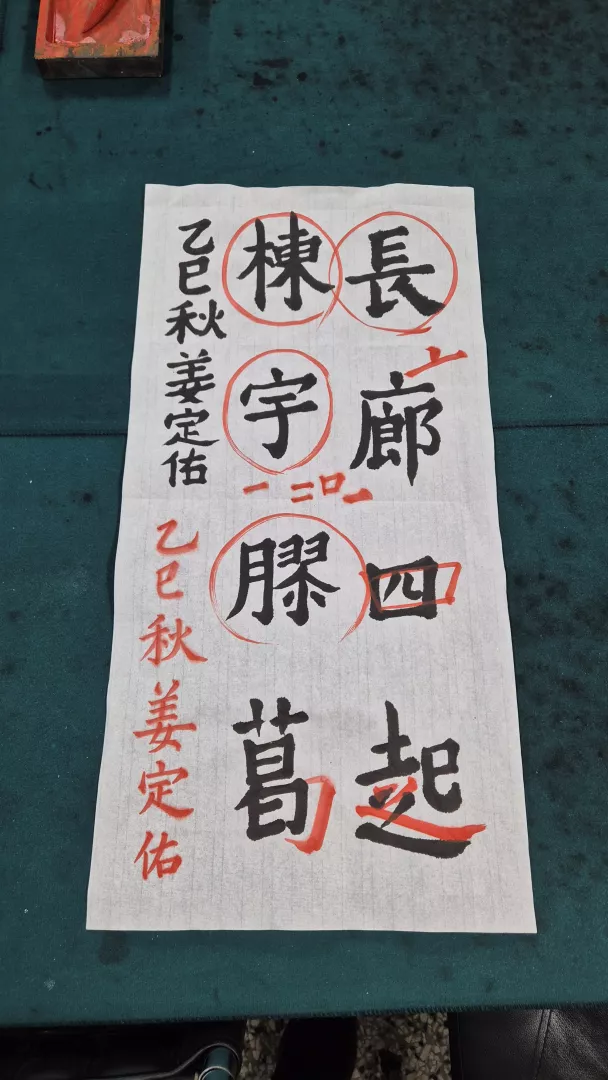 長廊四起
棟宇膠葛
乙巳秋姜定佑
乙巳秋姜定佑